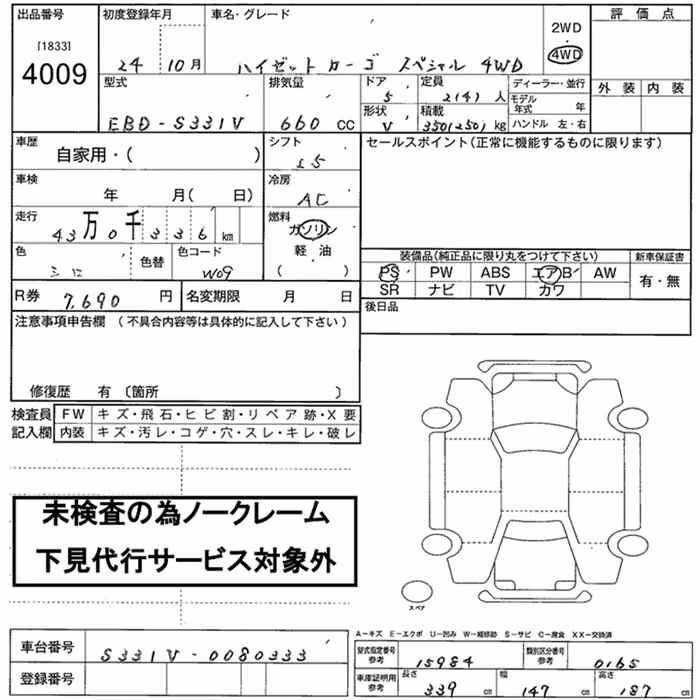 出品番号 初度登録年月 車名・グレード 2WD 評価点
[1833] 4009 24年 10月 ハイゼットカーゴ スペシャル 4WD 4WD
型式 排気量 ドア 5 定員 2(4)人 ディーラー・並行 外装 内装
EBD-S331V 660 CC 形状 V 積載 350(250)kg モデル年式 年 ハンドル 左・右
車歴 自家用・( ) シフト セールスポイント(正常に機能するものに限ります)
車検 年 月( 日) 冷房 AC
走行 43万0千336km 燃料 ガソリン 軽・油 ( )
色 シロ 色替 色コード W09
装備品(純正品に限り丸をつけて下さい) 新車保証書
PS PW ABS エアB AW 有・無
SR ナビ TV カワ
R券 7,690円 名変期限 月 日 後日品
注意事項申告欄 (不具合内容等は具体的に記入して下さい)
修復歴 有〔箇所 〕
検査員 FW キズ・飛石・ヒビ割・リペア跡・X要
記入欄 内装 キズ・汚レ・コゲ・穴・スレ・キレ・破レ
未検査の為ノークレーム
下見代行サービス対象外
スペア
A-キズ E-エクボ U-凹み W-補修跡 S-サビ C-腐食 XX-交換済
車台番号 S331V-0080333 型式指定番号 参考 15984 類別区分番号 参考 0165
登録番号 車庫証明用 参考 長さ 339cm 幅 147cm 高さ 187cm